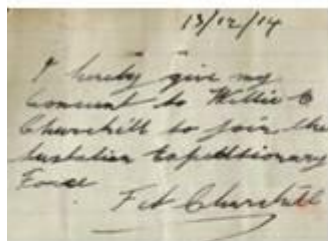 13/12/14
I hereby give my
Consent to Willie C
Churchill to join the
Australian Expeditionary
Force
F A Churchill